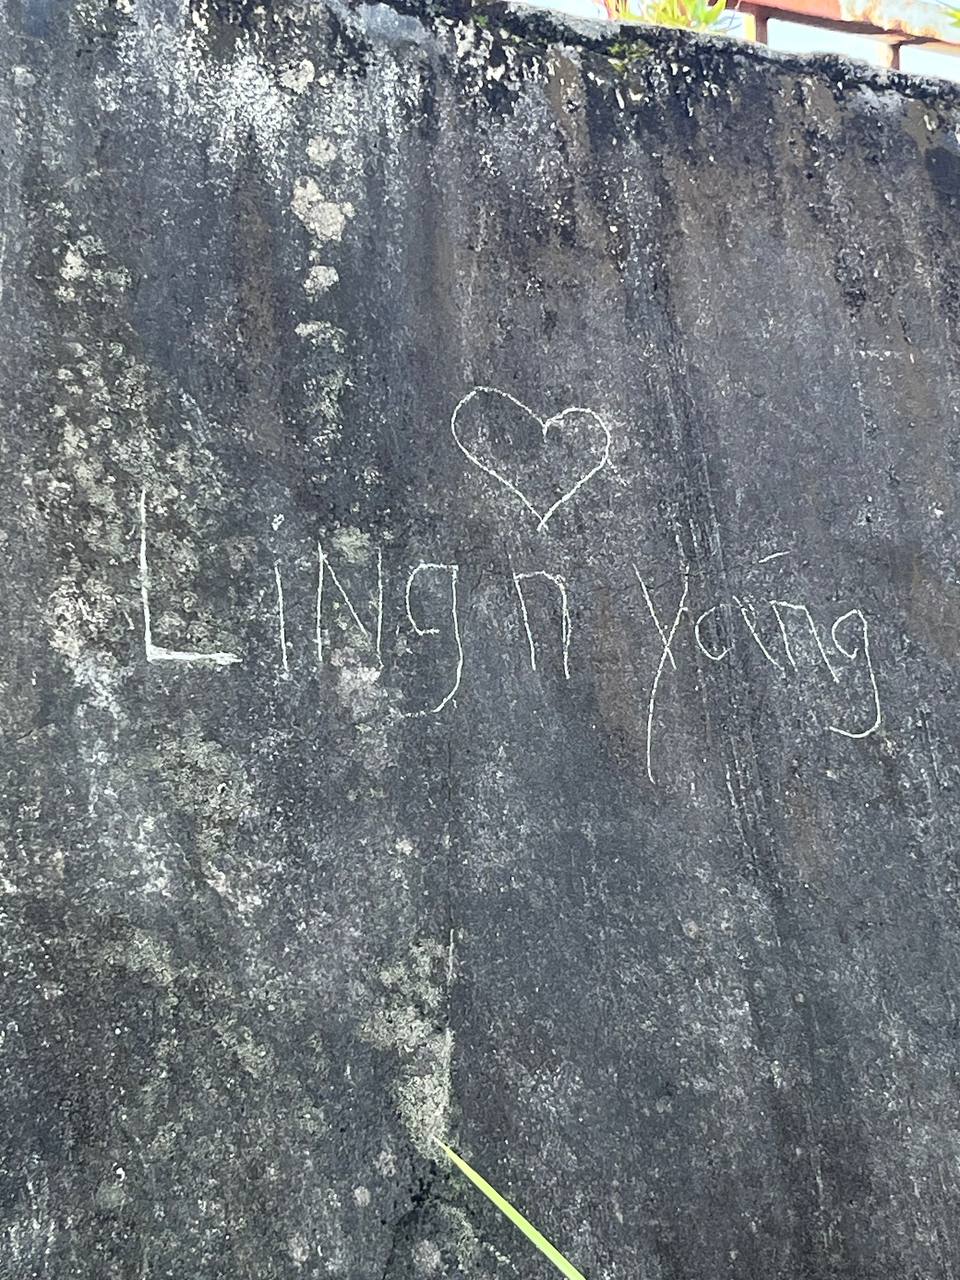 LiNg n yaing